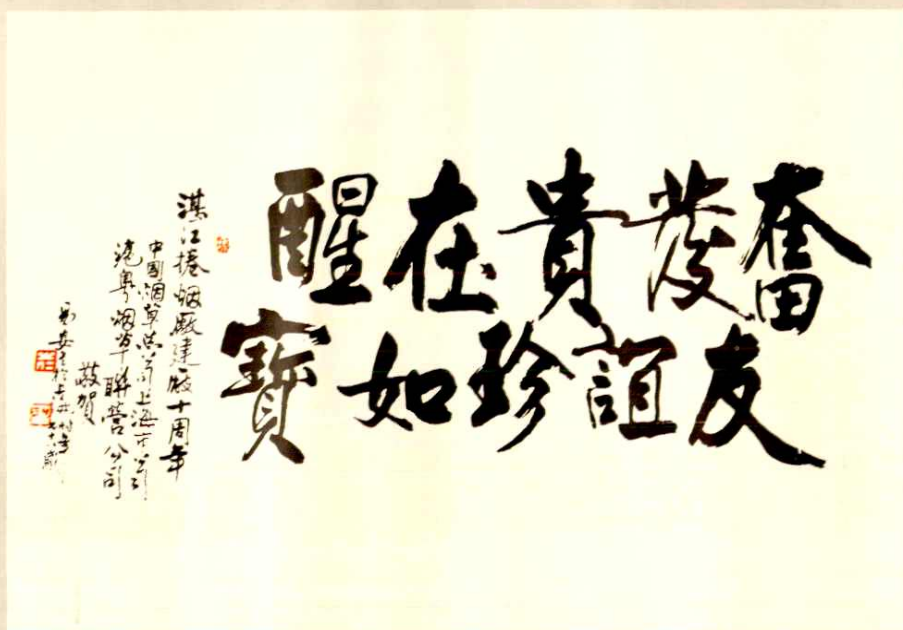 奮發貴在醒
友誼珍如寶
湛江捲烟廠建廠十周年
中國烟草總公司上海市公司
滬粤烟草聯營公司
敬賀